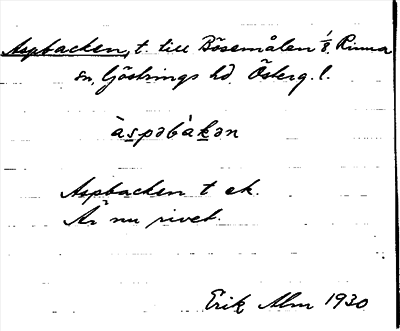 Aspbacken, t. till Bösemålen 1/8, Rinna
sn, Göstrings hd, Österg. l.
àspəbàkən
Aspbacken t ek.
Är nu rivet.
Erik Alm 1930